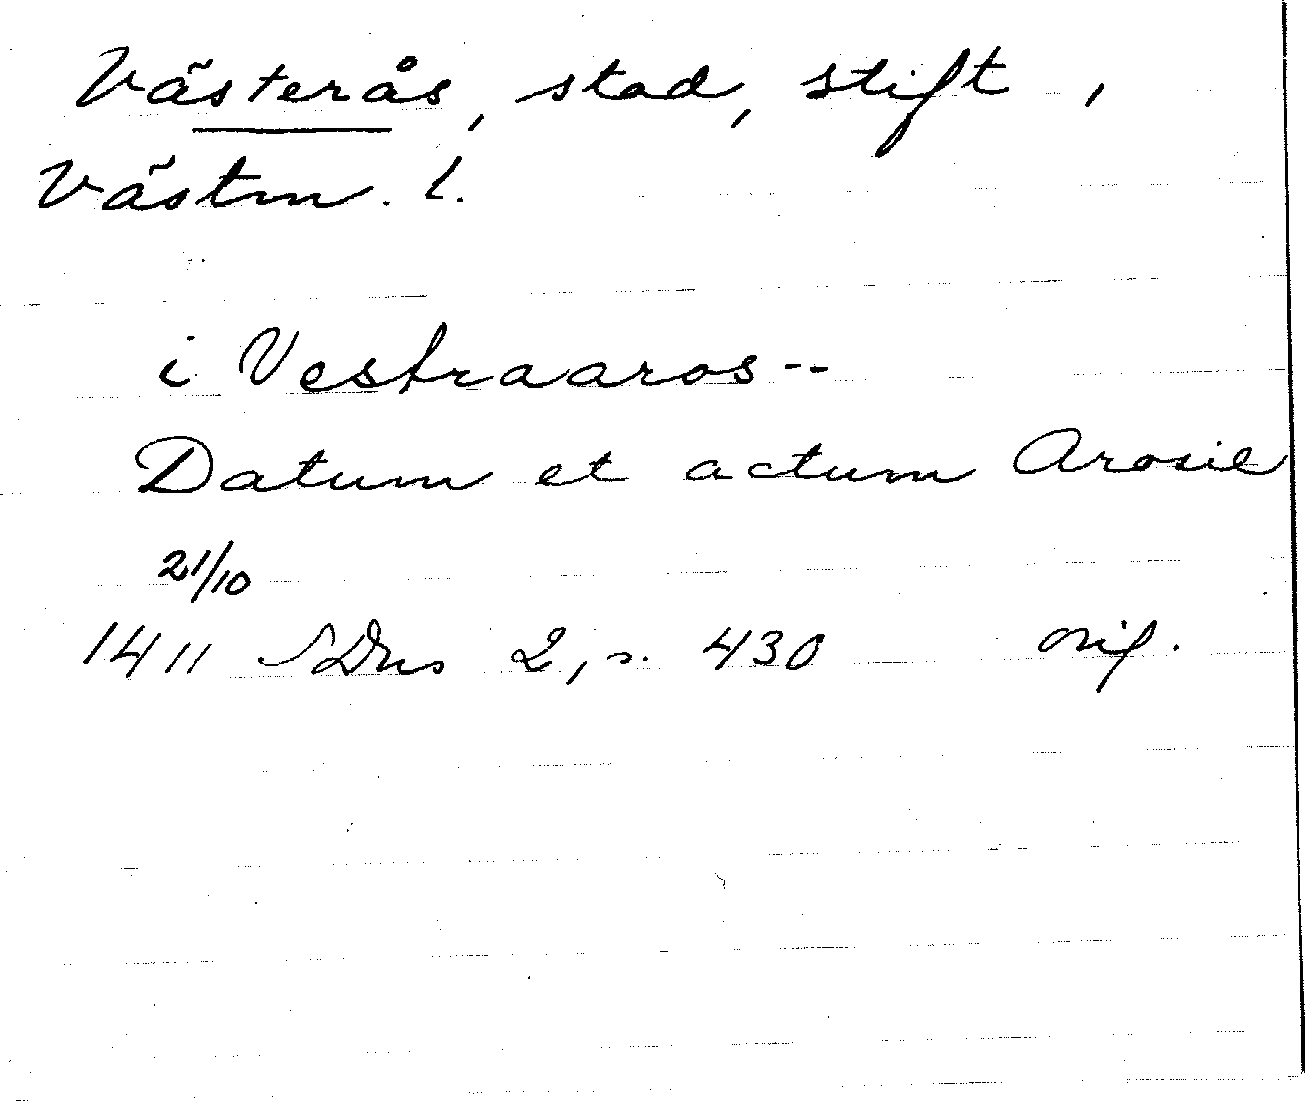 Västerås, stad, stift,
Västm. l.
i Vestraaros --
Datum et actum Arosie
21/10
1411 SDns 2, s. 430 orig.